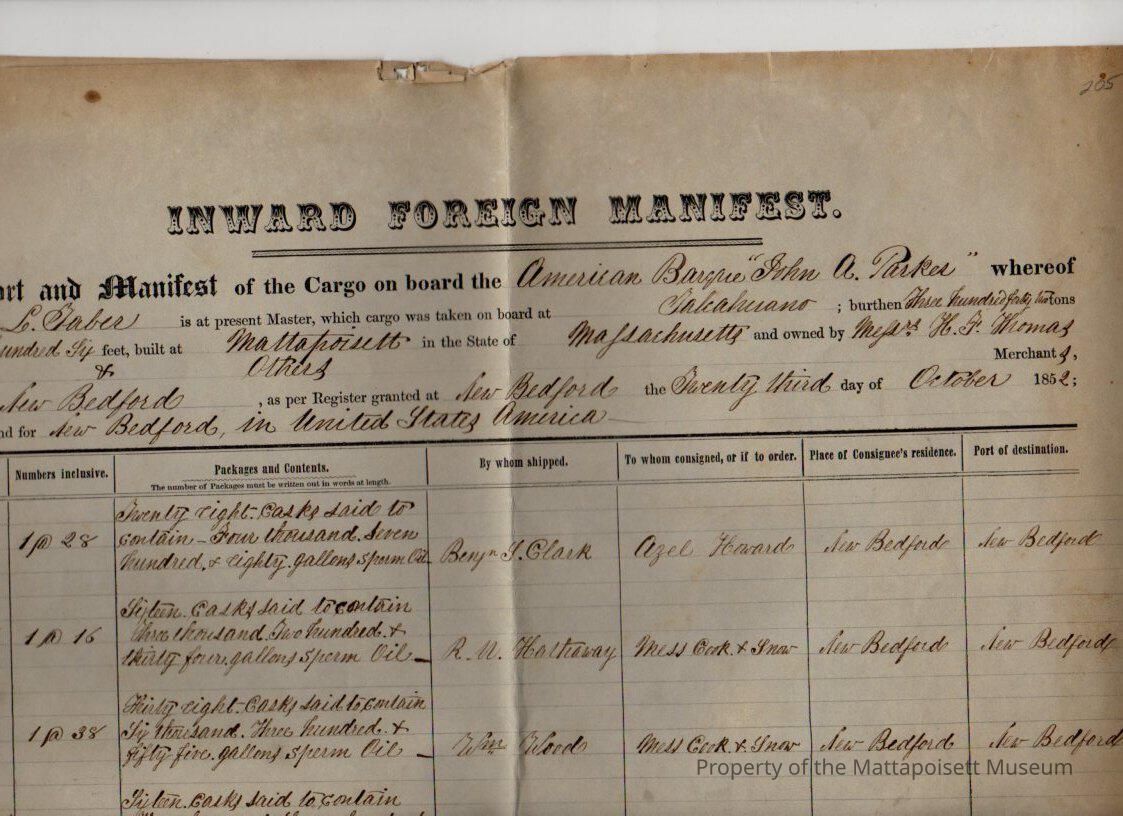 205
INWARD FOREIGN MANIFEST.
ort and Manifest of the Cargo on board the American Barque "John A. Parker" whereof
L. Taber is at present Master, which cargo was taken on board at Talcahuano ; burthen Three hundred forty two tons
undred Six feet, built at Mattapoisett in the State of Massachusetts and owned by Messrs H. F. Thomas
& Others Merchants,
New Bedford , as per Register granted at New Bedford the Twenty third day of October 1852;
nd for New Bedford, in United States America
Numbers inclusive. Packages and Contents. By whom shipped. To whom consigned, or if to order. Place of Consignee's residence. Port of destination.
The number of Packages must be written out in words at length.
Twenty eight Casks said to
1 @ 28 contain - Four thousand Seven
hundred & eighty gallons Sperm Oil Benjn S. Clark Azel Howard New Bedford New Bedford
Sixteen Casks said to contain
1 @ 16 Three thousand Two hundred &
thirty four gallons Sperm Oil R. N. Hathaway Mess Cook & Snow New Bedford New Bedford
Thirty eight Casks said to contain
1 @ 38 Six thousand Three hundred &
fifty five gallons Sperm Oil Wm Wood Mess Cook & Snow New Bedford New Bedford
Property of the Mattapoisett Museum
Sixteen Casks said to contain